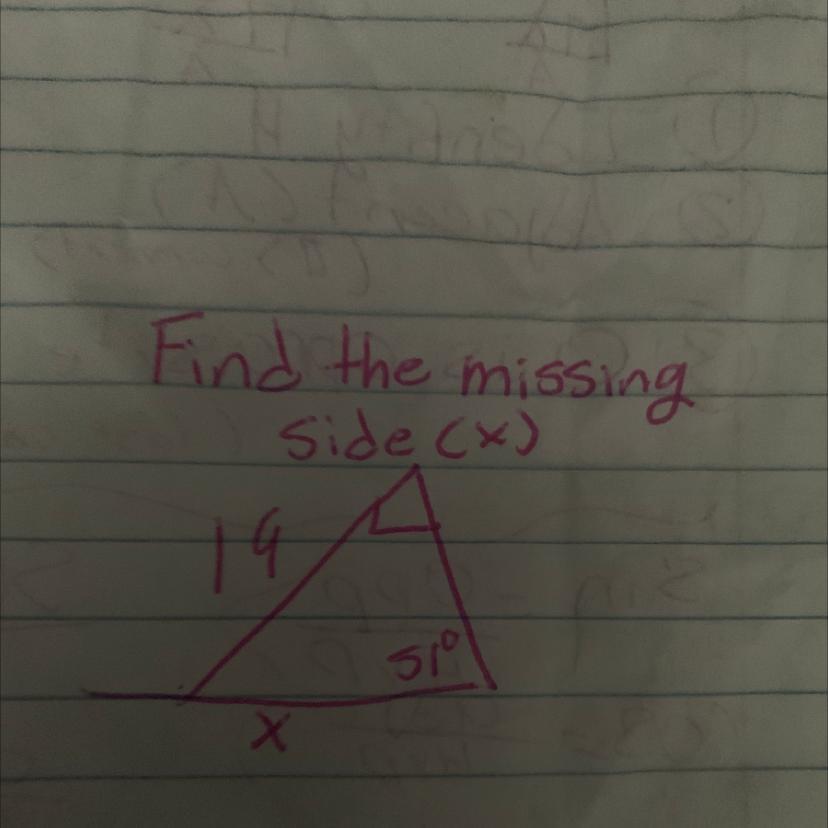 Find the missing
side (x)
19
51°
x